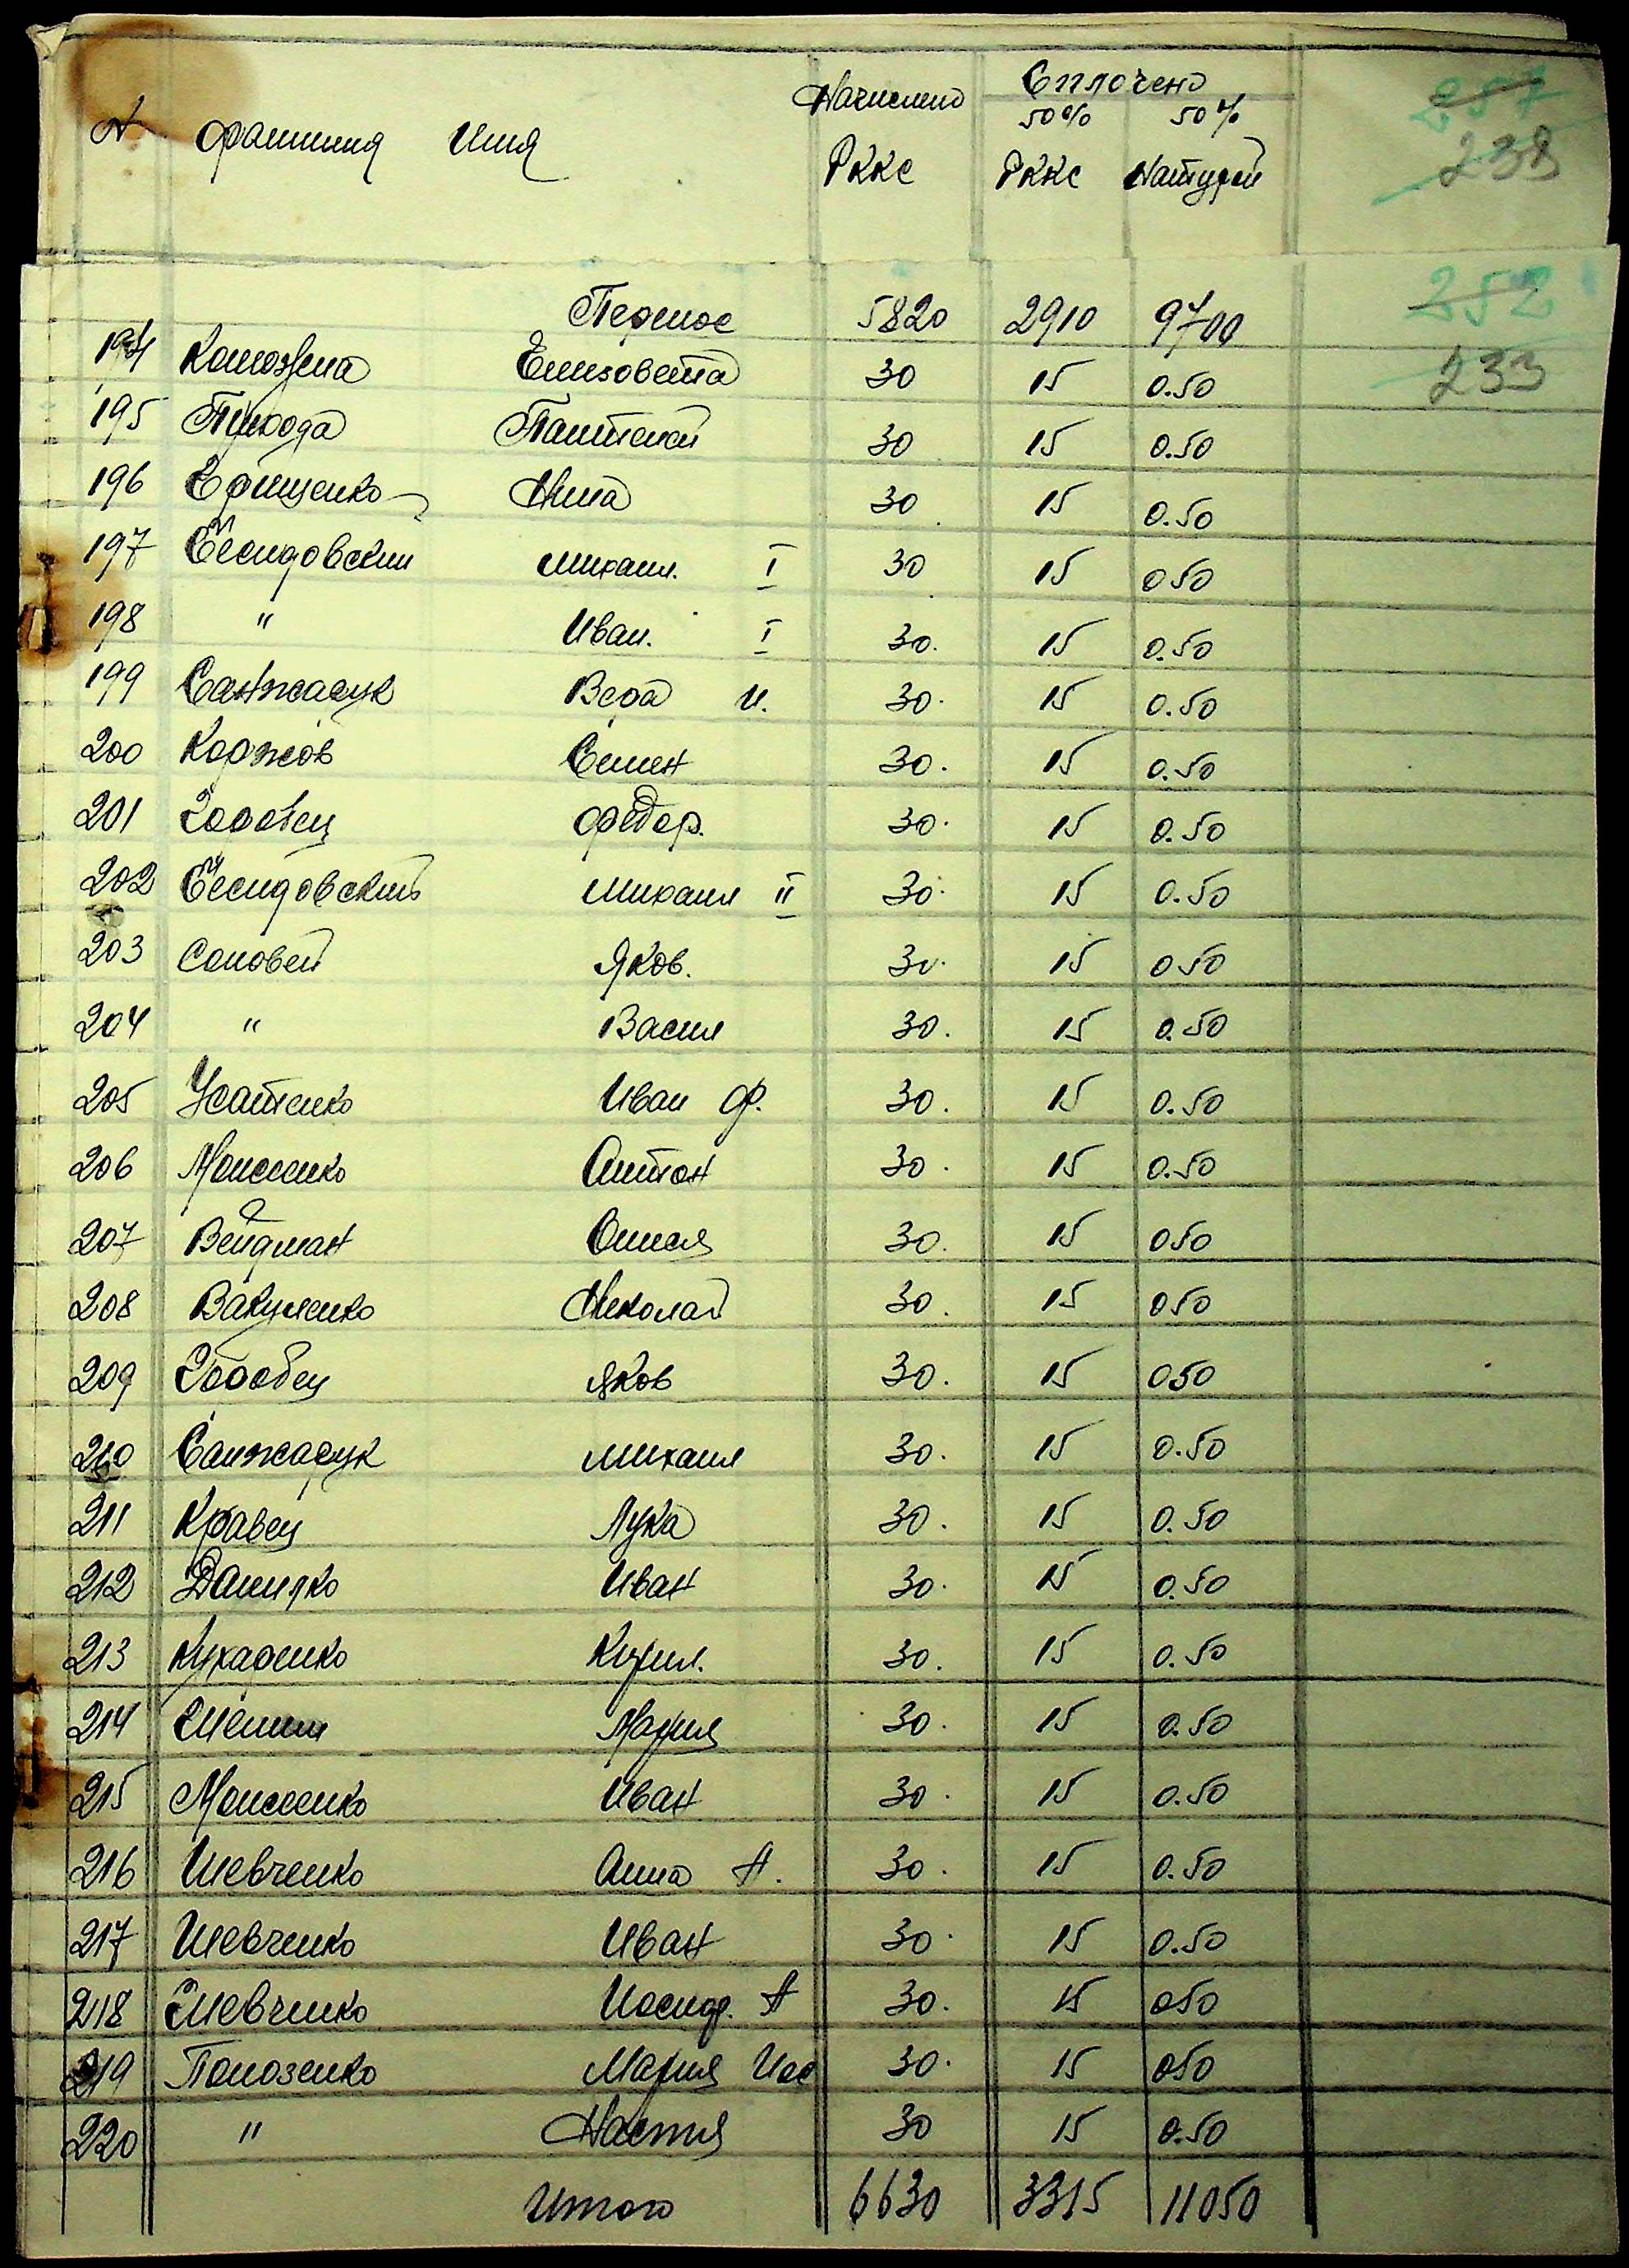 № Фамилия Имя Начислено Сплочено
50% 50%
РККС РККС Натурой
257
238
Перенос 5820 2910 9700 252
194 Камозина Елизовета 30 15 0.50 233
195 Прихода Пантелей 30 15 0.50
196 Грищенко Нина 30 15 0.50
197 Бесидовский Михаил. I 30 15 050
198 " Иван. I 30. 15 0.50
199 Санжасук Вера И. 30. 15 0.50
200 Коржов Семен 30. 15 0.50
201 Горобец Федор. 30. 15 0.50
202 Бесидовский Михаил II 30. 15 0.50
203 Соловей Яков. 30. 15 050
204 " Васил 30. 15 0.50
205 Усатенко Иван Ф. 30. 15 0.50
206 Моисеенко Антон 30. 15 0.50
207 Вейдман 30. 15 050
208 Вакуленко Николай 30. 15 050
209 Горобец Яков 30. 15 050
210 Санжасук Михаил 30. 15 0.50
211 Кравец Лука 30. 15 0.50
212 Данилко Иван 30. 15 0.50
213 Кухаренко Кирил. 30. 15 0.50
214 Мария 30. 15 0.50
215 Моисеенко Иван 30. 15 0.50
216 Шевченко Анна А. 30. 15 0.50
217 Шевченко Иван 30. 15 0.50
218 Шевченко А 30. 15 050
219 Полозенко Мария Иос 30. 15 050
220 " Настя 30 15 0.50
Итого 6630 3315 11050